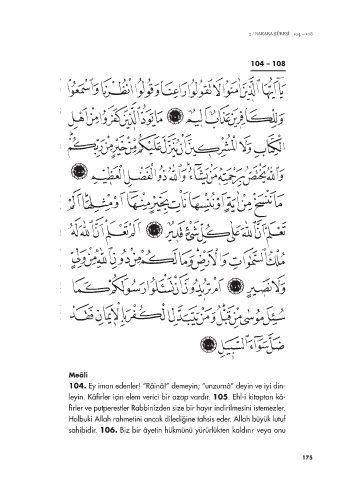 2 / BAKARA SÛRESİ · 104 – 108
104 – 108
يَٓا اَيُّهَا الَّذ۪ينَ اٰمَنُوا لَا تَقُولُوا رَاعِنَا وَقُولُوا انْظُرْنَا وَاسْمَعُواۜ
وَلِلْكَافِر۪ينَ عَذَابٌ اَل۪يمٌ ﴿١٠٤﴾ مَا يَوَدُّ الَّذ۪ينَ كَفَرُوا مِنْ اَهْلِ
الْكِتَابِ وَلَا الْمُشْرِك۪ينَ اَنْ يُنَزَّلَ عَلَيْكُمْ مِنْ خَيْرٍ مِنْ رَبِّكُمْۜ
وَاللّٰهُ يَخْتَصُّ بِرَحْمَتِه۪ مَنْ يَشَٓاءُۜ وَاللّٰهُ ذُو الْفَضْلِ الْعَظ۪يمِ ﴿١٠٥﴾
مَا نَنْسَخْ مِنْ اٰيَةٍ اَوْ نُنْسِهَا نَأْتِ بِخَيْرٍ مِنْهَٓا اَوْ مِثْلِهَاۜ اَلَمْ
تَعْلَمْ اَنَّ اللّٰهَ عَلٰى كُلِّ شَيْءٍ قَد۪يرٌ ﴿١٠٦﴾ اَلَمْ تَعْلَمْ اَنَّ اللّٰهَ لَهُ
مُلْكُ السَّمٰوَاتِ وَالْاَرْضِۜ وَمَا لَكُمْ مِنْ دُونِ اللّٰهِ مِنْ وَلِيٍّ
وَلَا نَص۪يرٍ ﴿١٠٧﴾ اَمْ تُر۪يدُونَ اَنْ تَسْـَٔلُوا رَسُولَكُمْ كَمَا
سُئِلَ مُوسٰى مِنْ قَبْلُۜ وَمَنْ يَتَبَدَّلِ الْكُفْرَ بِالْا۪يمَانِ فَقَدْ
ضَلَّ سَوَٓاءَ السَّب۪يلِ ﴿١٠٨﴾
Meâli
104. Ey iman edenler! “Râinâ!” demeyin; “unzurnâ” deyin ve iyi din-
leyin. Kâfirler için elem verici bir azap vardır. 105. Ehl-i kitaptan kâ-
firler ve putperestler Rabbinizden size bir hayır indirilmesini istemezler.
Halbuki Allah rahmetini ancak dilediğine tahsis eder. Allah büyük lutuf
sahibidir. 106. Biz bir âyetin hükmünü yürürlükten kaldırır veya onu
175